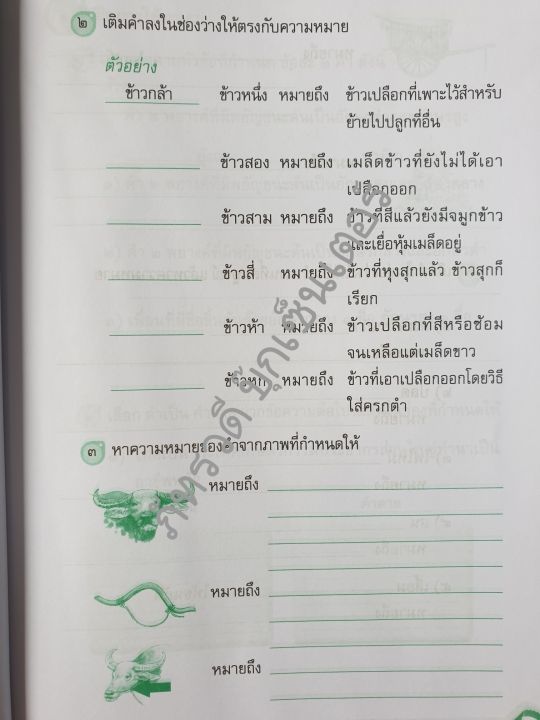 ๒ เติมคำลงในช่องว่างให้ตรงกับความหมาย
ตัวอย่าง
ข้าวกล้า ข้าวหนึ่ง หมายถึง ข้าวเปลือกที่เพาะไว้สำหรับ
ย้ายไปปลูกที่อื่น
ข้าวสอง หมายถึง เมล็ดข้าวที่ยังไม่ได้เอา
เปลือกออก
ข้าวสาม หมายถึง ข้าวที่สีแล้วยังมีจมูกข้าว
และเยื่อหุ้มเมล็ดอยู่
ข้าวสี่ หมายถึง ข้าวที่หุงสุกแล้ว ข้าวสุกก็
เรียก
ข้าวห้า หมายถึง ข้าวเปลือกที่สีหรือซ้อม
จนเหลือแต่เมล็ดขาว
ข้าวหก หมายถึง ข้าวที่เอาเปลือกออกโดยวิธี
ใส่ครกตำ
๓ หาความหมายของคำจากภาพที่กำหนดให้
หมายถึง
หมายถึง
หมายถึง
ภัทรวดี บุ๊กเซ็นเตอร์